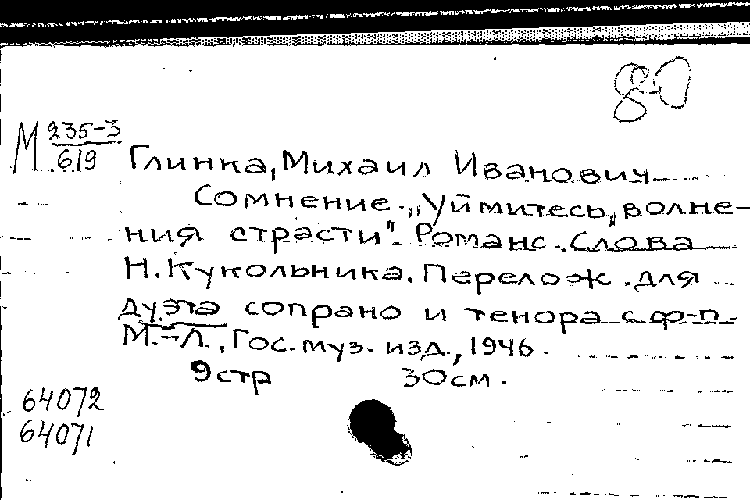 80
М 235-3
619
Глинка, Михаил Иванович
Сомнение. „Уймитесь, волне-
ния страсти". Романс. Слова
Н. Кукольника. Перелож. для
дуэта сопрано и тенора с ф-п.
М.-Л., Гос. муз. изд., 1946.
9 стр 30 см.
64072
64071